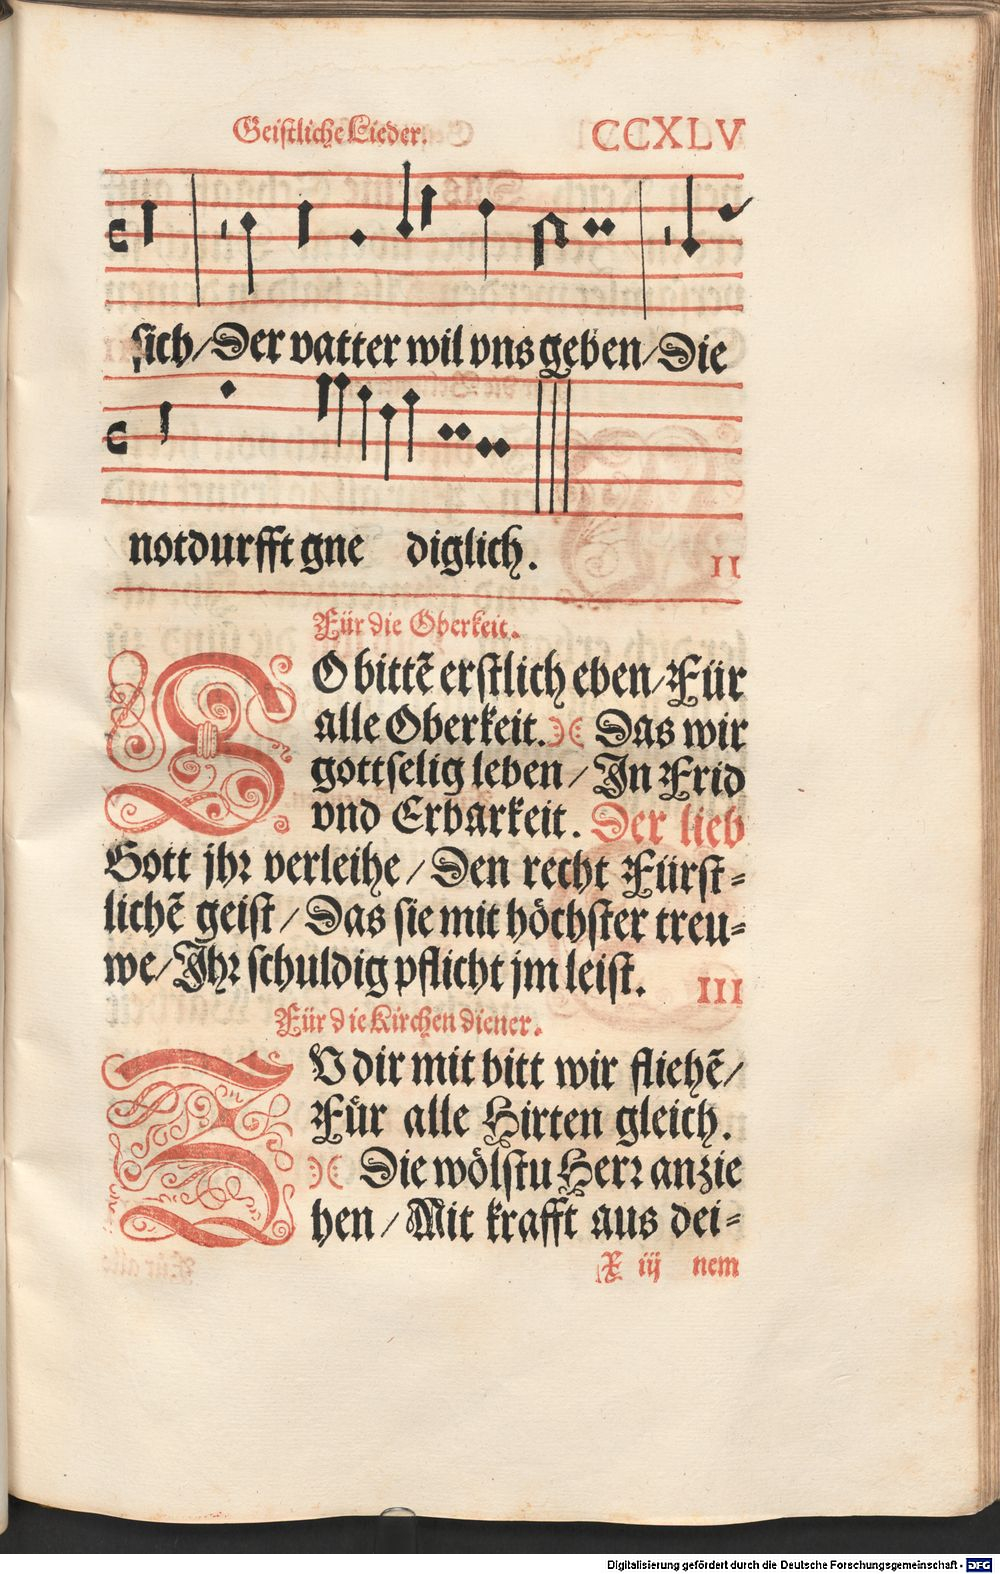 Geistliche Lieder. CCXLV
sich/Der vatter wil vns geben/Die
notdurfft gne diglich.
II
Für die Oberkeit.
SO bittē erstlich eben/Für
alle Oberkeit. Das wir
gottselig leben/In Frid
vnd Erbarkeit. Der lieb
Gott jhr verleihe/Den recht Fürst-
lichē geist/Das sie mit höchster treu-
we/Ihr schuldig pflicht jm leist.
III
Für die Kirchen diener.
ZV dir mit bitt wir fliehē/
Für alle Hirten gleich.
Die wölstu Herr anzie
hen/Mit krafft aus dei-
X iij nem
Digitalisierung gefördert durch die Deutsche Forschungsgemeinschaft - DFG